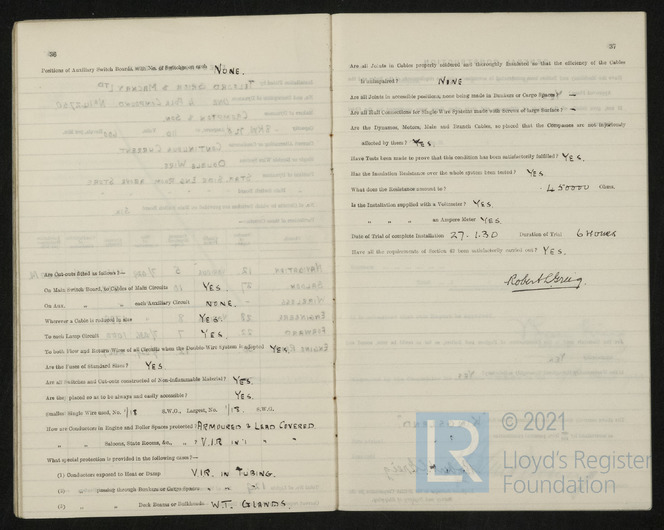 36
Positions of Auxiliary Switch Boards, with No. of Switches on each NONE.
Are Cut-outs fitted as follows?—
On Main Switch Board, to Cables of Main Circuits YES.
On Aux. „ „ each Auxiliary Circuit NONE.
Wherever a Cable is reduced in size YES.
To each Lamp Circuit YES.
To both Flow and Return Wires of all Circuits when the Double-Wire System is adopted YES.
Are the Fuses of Standard Sizes? YES.
Are all Switches and Cut-outs constructed of Non-inflammable Material? YES.
Are they placed so as to be always and easily accessible? YES.
Smallest Single Wire used, No. 1/18 S.W.G., Largest, No. 1/18. S.W.G.
How are Conductors in Engine and Boiler Spaces protected? ARMOURED & LEAD COVERED
„ „ Saloons, State Rooms, &c., „ ? V.I.R IN „ „
What special protection is provided in the following cases?—
(1) Conductors exposed to Heat or Damp V.I.R. IN TUBING.
(2) „ passing through Bunkers or Cargo Spaces
(3) „ „ Deck Beams or Bulkheads W.T. GLANDS.
37
Are all Joints in Cables properly soldered and thoroughly insulated so that the efficiency of the Cables
is unimpaired? NONE
Are all Joints in accessible positions, none being made in Bunkers or Cargo Spaces? —
Are all Hull Connections for Single-Wire Systems made with Screws of large Surface? —
Are the Dynamos, Motors, Main and Branch Cables, so placed that the Compasses are not injuriously
affected by them? YES.
Have Tests been made to prove that this condition has been satisfactorily fulfilled? YES.
Has the Insulation Resistance over the whole system been tested? YES.
What does the Resistance amount to? 450000 Ohms.
Is the Installation supplied with a Voltmeter? YES.
„ „ „ an Ampere Meter YES.
Date of Trial of complete Installation 27.1.30 Duration of Trial 6 HOURS
Have all the requirements of Section 42 been satisfactorily carried out? YES.
© 2021
LR
Lloyd's Register
Foundation